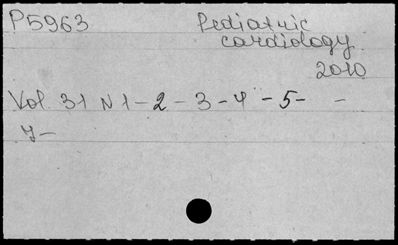 P5963 Pediatric
cardiology
2010
Vol. 31 N 1 - 2 - 3 - 4 - 5 - -
7 -